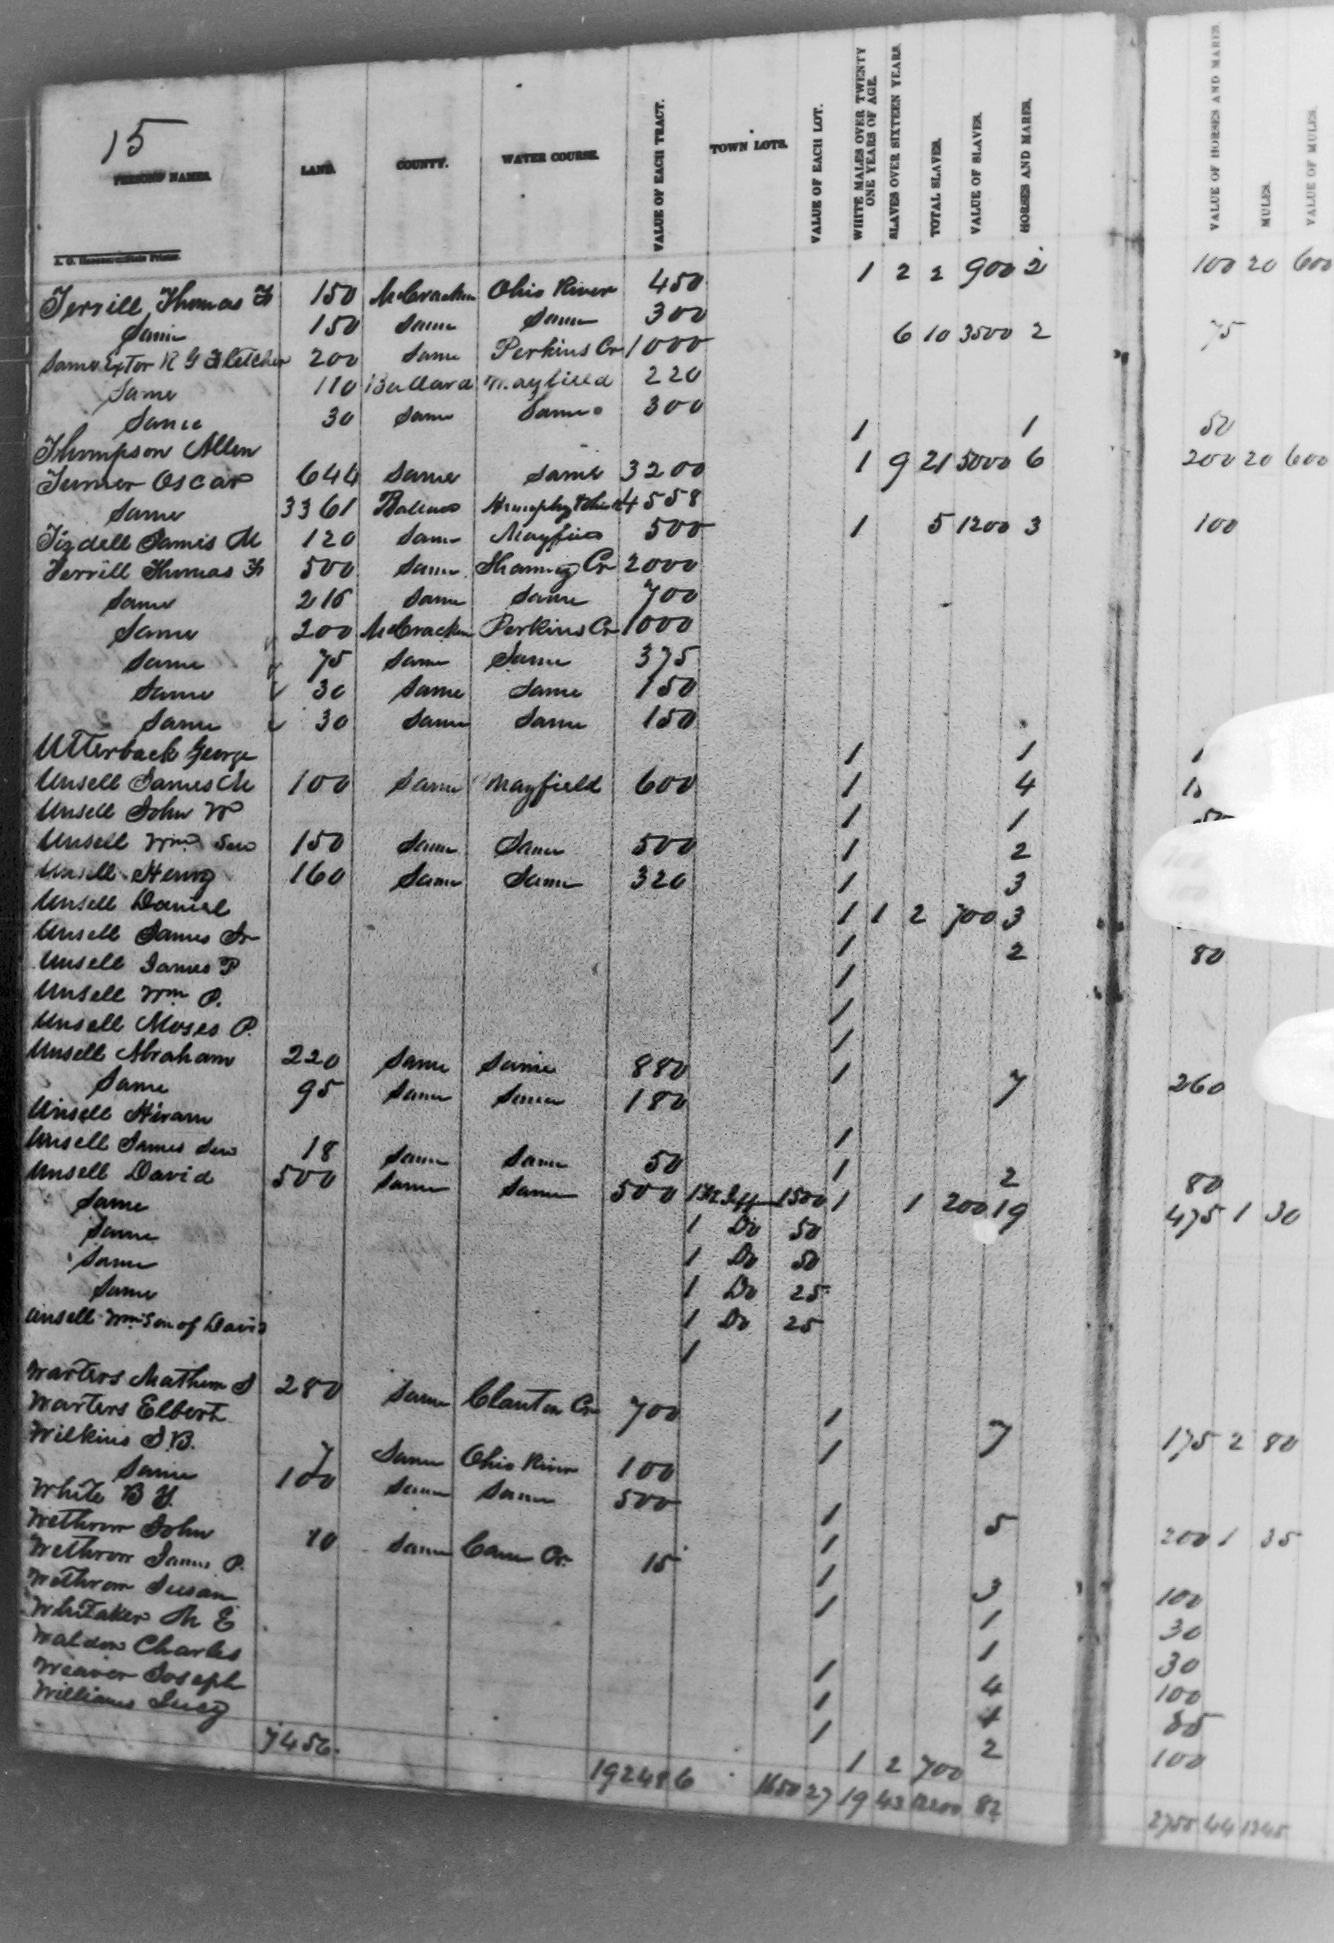 15
PERSONS' NAMES. LAND. COUNTY. WATER COURSE. VALUE OF EACH TRACT. TOWN LOTS. VALUE OF EACH LOT. WHITE MALES OVER TWENTY ONE YEARS OF AGE. SLAVES OVER SIXTEEN YEARS. TOTAL SLAVES. VALUE OF SLAVES. HORSES AND MARES. VALUE OF HORSES AND MARES. MULES. VALUE OF MULES.
Terrill Thomas F 150 McCracken Ohio River 450 1 2 2 900 2 100 20 600
Same 150 Same Same 300
Same Extor R G Fletcher 200 Same Perkins Cr 1000 6 10 3500 2 75
Same 110 Ballard Mayfield 220
Same 30 Same Same 300
Thompson Allen 1 1 50
Turner Oscar 644 Same Same 3200 1 9 21 5000 6 200 20 600
Same 3361 Ballard 4558
Tisdell James M 120 Same Mayfield 500 1 5 1200 3 100
Terrill Thomas F 500 Same Cr 2000
Same 216 Same Same 700
Same 200 McCracken Perkins Cr 1000
Same 75 Same Same 375
Same 30 Same Same 150
Same 30 Same Same 150
Utterback George 1 1
Unsell James M 100 Same Mayfield 600 1 4
Unsell John W 1 1
Unsell Wm Sen 150 Same Same 500 1 2
Unsell Henry 160 Same Same 320 1 3
Unsell Daniel 1 1 2 700 3
Unsell James Jr 1 2 80
Unsell James P 1
Unsell Wm P. 1
Unsell Moses P. 1
Unsell Abraham 220 Same Same 880 1 7 260
Same 95 Same Same 180
Unsell Hiram 1
Unsell James Sen 18 Same Same 50 1 2 80
Unsell David 500 Same Same 500 1500 1 1 200 19 475 1 30
Same 1 Do 50
Same 1 Do 50
Same 1 Do 25
Same 1 Do 25
Unsell Wm Son of David 1
Warters Mathew S 280 Same Clanton Cr 700 1 7 175 2 80
Warters Elbert 1
Wilkins J.B. 7 Same Ohio River 100
Same 100 Same Same 500 1 5 200 1 35
White B Y. 1
Wethrow John 10 Same Cane Cr. 15 1 3 100
Wethrow James P. 1 1 30
Wethrow Susan 1 30
Whitaker M E 1 4 100
Waldon Charles 1 1
Weaver Joseph 1 2 100
Williams Lucy 1 2 700
7456. 192486 1650 27 19 43 12200 82 2755 44 1345